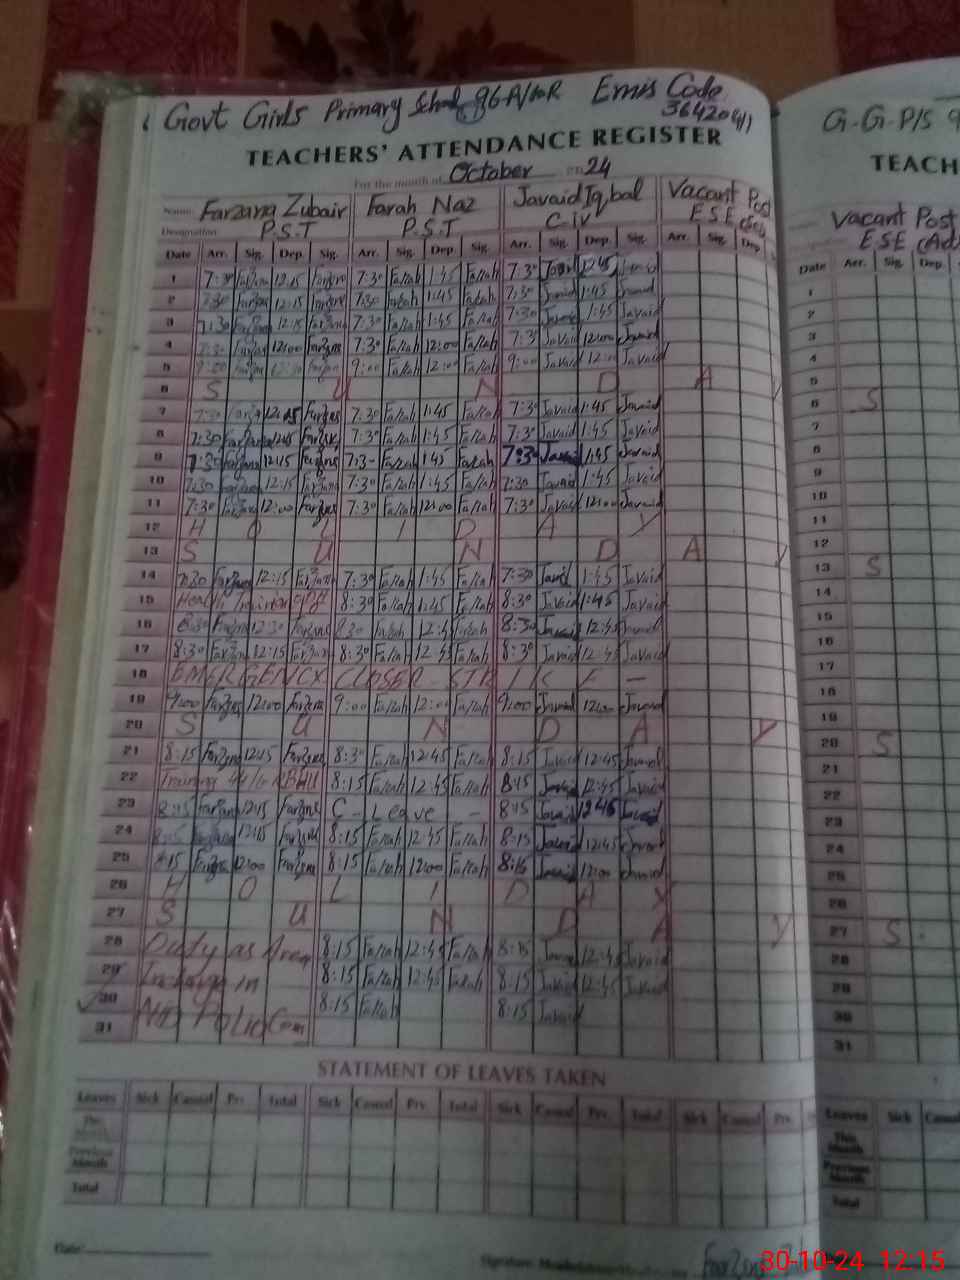 Govt Girls Primary School 96-A/ Emis Code
TEACHERS' ATTENDANCE REGISTER
For the month of October 24
Name: Farzana Zubair Farah Naz Javaid Iqbal Vacant Post
Designation: P.S.T P.S.T C-iv E.S.E
Date Arr. Sig. Dep. Sig. Arr. Sig. Dep. Sig. Arr. Sig. Dep. Sig. Arr. Sig. Dep
1 7:30 Farzana 12:15 Farzana 7:30 Farah 1:45 Farah 7:30 Javaid 12:45 Javaid
2 7:30 Farzana 12:15 Farzana 7:30 Farah 1:45 Farah 7:30 Javaid 1:45 Javaid
3 7:30 Farzana 12:15 Farzana 7:30 Farah 1:45 Farah 7:30 Javaid 1:45 Javaid
4 7:30 Farzana 12:00 Farzana 7:30 Farah 12:00 Farah 7:30 Javaid 12:00 Javaid
5 9:00 Farzana 12:00 Farzana 9:00 Farah 12:00 Farah 9:00 Javaid 12:00 Javaid
6 S U N D A Y
7 7:30 Farzana 12:15 Farzana 7:30 Farah 1:45 Farah 7:30 Javaid 1:45 Javaid
8 7:30 Farzana 12:15 Farzana 7:30 Farah 1:45 Farah 7:30 Javaid 1:45 Javaid
9 7:30 Farzana 12:15 Farzana 7:30 Farah 1:45 Farah 7:30 Javaid 1:45 Javaid
10 7:30 Farzana 12:15 Farzana 7:30 Farah 1:45 Farah 7:30 Javaid 1:45 Javaid
11 7:30 Farzana 12:00 Farzana 7:30 Farah 12:00 Farah 7:30 Javaid 12:00 Javaid
12 H O L I D A Y
13 S U N D A Y
14 7:30 Farzana 12:15 Farzana 7:30 Farah 1:45 Farah 7:30 Javaid 1:45 Javaid
15 Health Training 8:30 Farah 1:45 Farah 8:30 Javaid 1:45 Javaid
16 8:30 Farzana 12:30 Farzana 8:30 Farah 12:45 Farah 8:30 Javaid 12:45 Javaid
17 8:30 Farzana 12:15 Farzana 8:30 Farah 12:45 Farah 8:30 Javaid 12:45 Javaid
18 EMERGENCY CLOSER
19 9:00 Farzana 12:00 Farzana 9:00 Farah 12:00 Farah 9:00 Javaid 12:00 Javaid
20 S U N D A Y
21 8:15 Farzana 12:15 Farzana 8:30 Farah 12:45 Farah 8:15 Javaid 12:45 Javaid
22 Training 8:15 Farah 12:45 Farah 8:15 Javaid 12:45 Javaid
23 8:15 Farzana 12:15 Farzana C - Leave - 8:15 Javaid 12:45 Javaid
24 8:15 Farzana 12:15 Farzana 8:15 Farah 12:45 Farah 8:15 Javaid 12:45 Javaid
25 8:15 Farzana 12:00 Farzana 8:15 Farah 12:00 Farah 8:15 Javaid 12:00 Javaid
26 H O L I D A Y
27 S U N D A Y
28 Duty as Area 8:15 Farah 12:45 Farah 8:15 Javaid 12:45 Javaid
29 Incharge in 8:15 Farah 12:45 Farah 8:15 Javaid 12:45 Javaid
30 NID Polio Cam 8:15 Farah 8:15 Javaid
31
STATEMENT OF LEAVES TAKEN
Leaves Sick Casual Prv. Total Sick Casual Prv. Total Sick Casual Prv. Total Sick Casual Prv.
This Month
Previous Month
Total
Date:
G-G-P/S 9
TEACH
Vacant Post
E.S.E
Date Arr. Sig. Dep.
1
2
3
4
5
6 S
7
8
9
10
11
12
13 S
14
15
16
17
18
19
20 S
21
22
23
24
25
26
27 S
28
29
30
31
Leaves Sick
This Month
Previous Month
Total
30-10-24 12:15